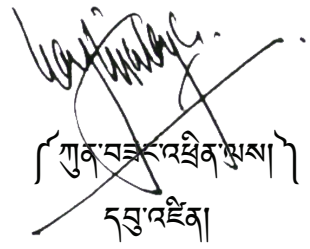 ༼ ཀུན་བཟང་འཕྲིན་ལས། ༽
དབུ་འཛིན།